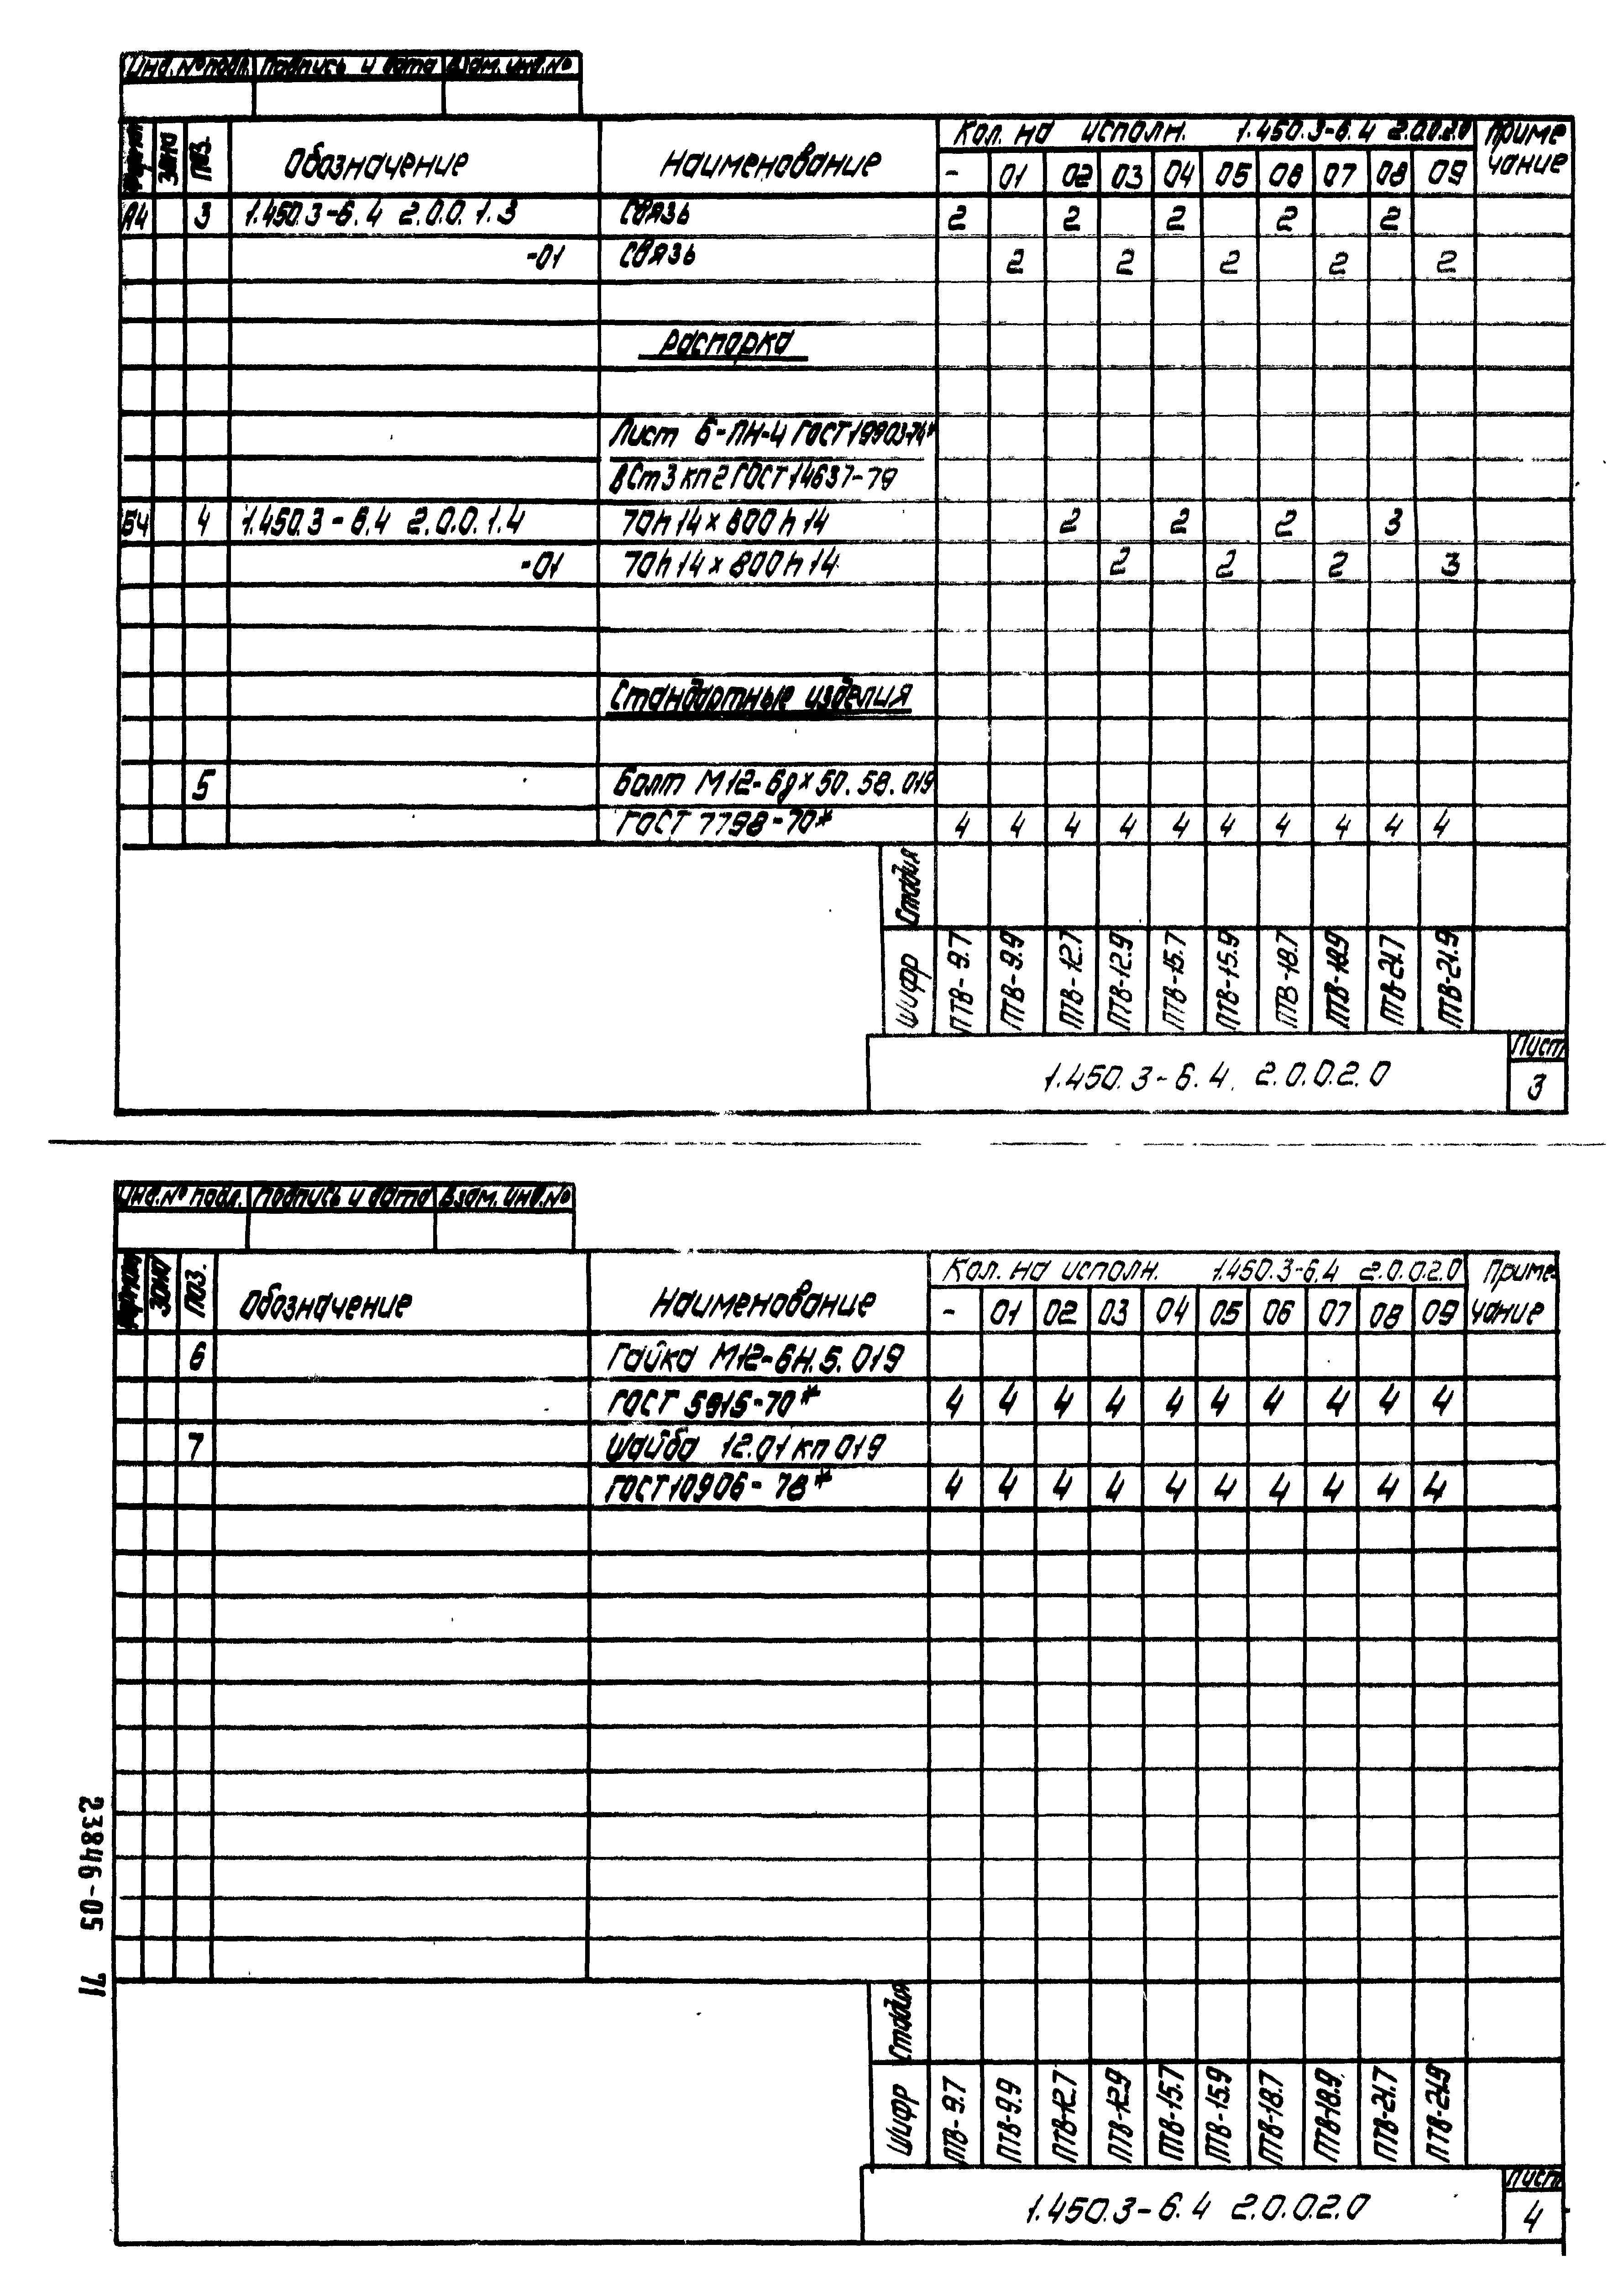 Инв.№ подл. Подпись и дата Взам. инв.№
Формат Зона Поз. Обозначение Наименование Кол. на исполн. 1.450.3-6.4 2.0.0.2.0 Приме
чание
- 01 02 03 04 05 06 07 08 09
А4 3 1.450.3-6.4 2.0.0.1.3 Связь 2 2 2 2 2
-01 Связь 2 2 2 2 2
Распорка
Лист Б-ПН-4 ГОСТ 19903-74*
ВСт3кп2 ГОСТ 14637-79
БЧ 4 1.450.3-6.4 2.0.0.1.4 70h14×600h14 2 2 2 3
-01 70h14×800h14 2 2 2 3
Стандартные изделия
5 Болт М12-6g×50.58.019
ГОСТ 7798-70* 4 4 4 4 4 4 4 4 4 4
Стадия
Шифр ПТВ-9.7 ПТВ-9.9 ПТВ-12.7 ПТВ-12.9 ПТВ-15.7 ПТВ-15.9 ПТВ-18.7 ПТВ-18.9 ПТВ-21.7 ПТВ-21.9
1.450.3-6.4. 2.0.0.2.0 Лист
3
Инв.№ подл. Подпись и дата Взам. инв.№
Формат Зона Поз. Обозначение Наименование Кол. на исполн. 1.450.3-6.4 2.0.0.2.0 Приме-
чание
- 01 02 03 04 05 06 07 08 09
6 Гайка М12-6Н.5.019
ГОСТ 5915-70* 4 4 4 4 4 4 4 4 4 4
7 Шайба 12.01кп 019
ГОСТ 10906-78* 4 4 4 4 4 4 4 4 4 4
Стадия
Шифр ПТВ-9.7 ПТВ-9.9 ПТВ-12.7 ПТВ-12.9 ПТВ-15.7 ПТВ-15.9 ПТВ-18.7 ПТВ-18.9 ПТВ-21.7 ПТВ-21.9
1.450.3-6.4 2.0.0.2.0 Лист
4
23846-05 71